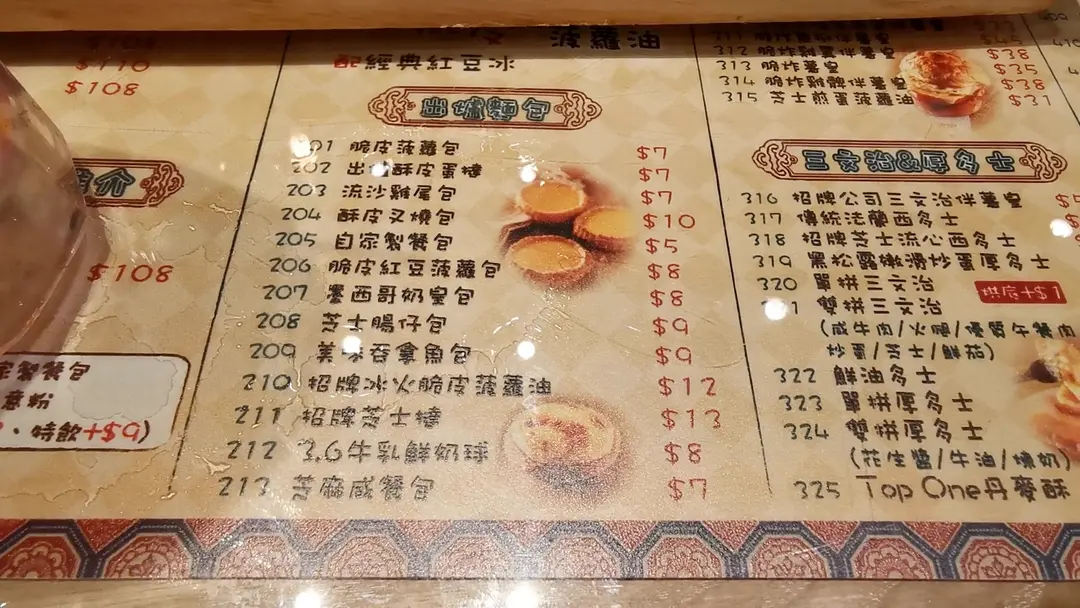 $110
$108
簡介
$108
自家製餐包
意粉
、特飲+$9)
菠蘿油
配經典紅豆冰
出爐麵包
201 脆皮菠蘿包 $7
202 出爐酥皮蛋撻 $7
203 流沙雞尾包 $7
204 酥皮叉燒包 $10
205 自家製餐包 $5
206 脆皮紅豆菠蘿包 $8
207 墨西哥奶皇包 $8
208 芝士腸仔包 $9
209 美味吞拿魚包 $9
210 招牌冰火脆皮菠蘿油 $12
211 招牌芝士撻 $13
212 3.6牛乳鮮奶球 $8
213 芝麻咸餐包 $7
312 脆炸雞翼伴薯皇 $38
313 脆炸薯皇 $35
314 脆炸雞髀伴薯皇 $38
315 芝士煎蛋菠蘿油 $31
三文治&厚多士
316 招牌公司三文治伴薯皇
317 傳統法蘭西多士
318 招牌芝士流心西多士
319 黑松露嫩滑炒蛋厚多士
320 單拼三文治 烘底+$1
雙拼三文治
(咸牛肉/火腿/優質午餐肉
炒蛋/芝士/鮮茄)
322 鮮油多士
323 單拼厚多士
324 雙拼厚多士
(花生醬/牛油/煉奶)
325 Top One丹麥酥